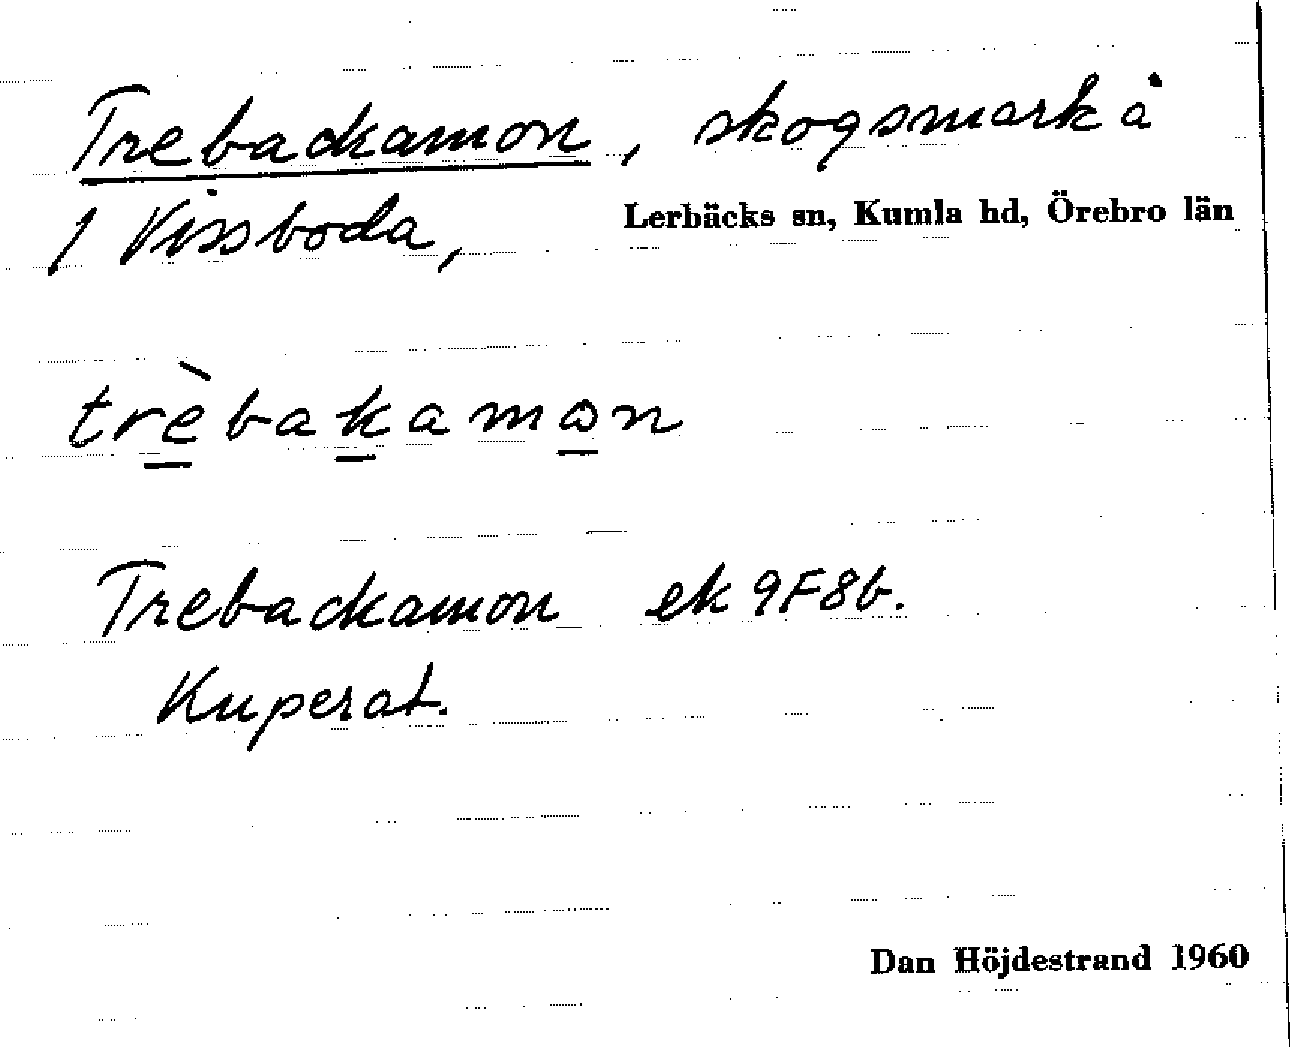 Trebackamon, skogsmark å
1 Vissboda, Lerbäcks sn, Kumla hd, Örebro län
trèbakamon
Trebackamon ek 9F8b.
Kuperat.
Dan Höjdestrand 1960